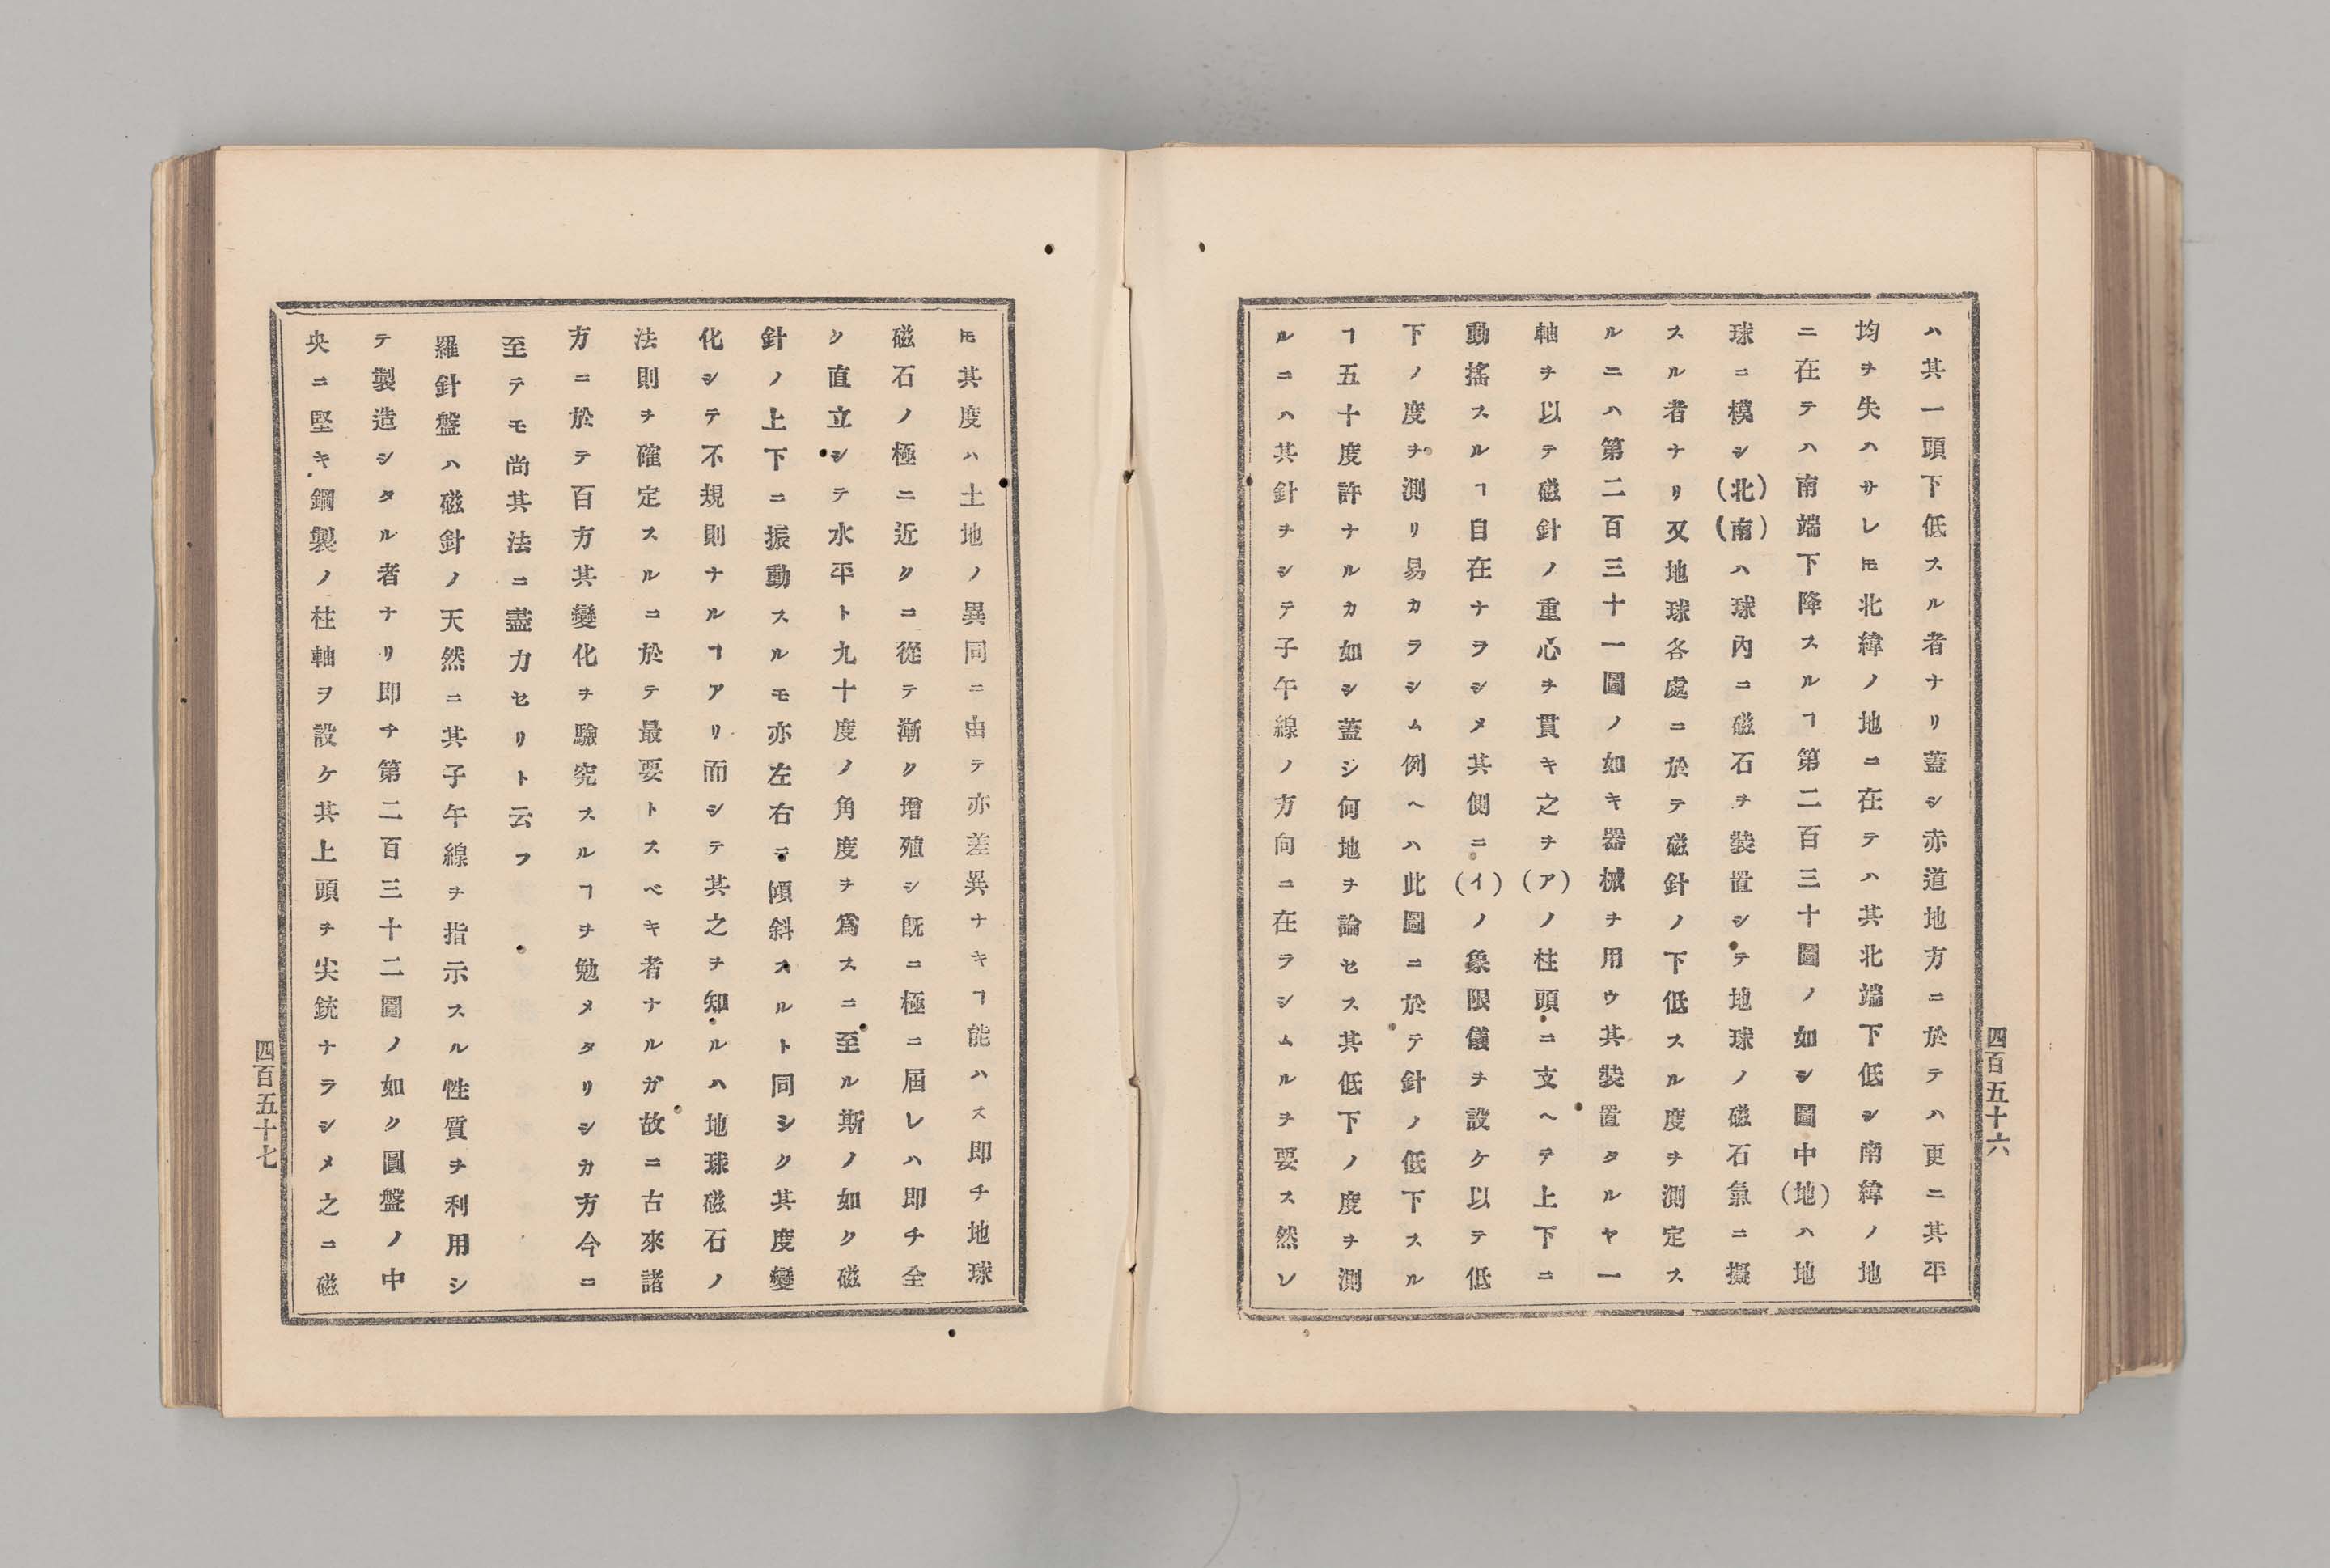 ハ其一頭下低スル者ナリ蓋シ赤道地方ニ於テハ更ニ其平
均ヲ失ハサレ𪜈北緯ノ地ニ在テハ其北端下低シ南緯ノ地
ニ在テハ南端下降スルヿ第二百三十圖ノ如シ圖中(地)ハ地
球ニ模シ(北)(南)ハ球內ニ磁石ヲ裝置シテ地球ノ磁石氣ニ擬
スル者ナリ又地球各處ニ於テ磁針ノ下低スル度ヲ測定ス
ルニハ第二百三十一圖ノ如キ器械ヲ用ウ其裝置タルヤ一
軸ヲ以テ磁針ノ重心ヲ貫キ之ヲ(ア)ノ柱頭ニ支ヘテ上下ニ
動搖スルヿ自在ナヲシメ其側ニ(イ)ノ象限儀ヲ設ケ以テ低
下ノ度ヲ測リ易カラシム例ヘハ此圖ニ於テ針ノ低下スル
ヿ五十度許ナルカ如シ蓋シ何地ヲ論セス其低下ノ度ヲ測
ルニハ其針ヲシテ子午線ノ方向ニ在ラシムルヲ要ス然レ
四百五十六
𪜈其度ハ土地ノ異同ニ由テ亦差異ナキヿ能ハス即チ地球
磁石ノ極ニ近クニ從テ漸ク增殖シ旣ニ極ニ屆レハ即チ全
ク直立シテ水平ト九十度ノ角度ヲ爲スニ至ル斯ノ如ク磁
針ノ上下ニ振動スルモ亦左右ニ傾斜スルト同シク其度變
化シテ不規則ナルヿアリ而シテ其之ヲ知ルハ地球磁石ノ
法則ヲ確定スルニ於テ最要トスベキ者ナルガ故ニ古來諸
方ニ於テ百方其變化ヲ驗究スルヿヲ勉メタリシカ方今ニ
至テモ尚其法ニ盡力セリト云フ
羅針盤ハ磁針ノ天然ニ其子午線ヲ指示スル性質ヲ利用シ
テ製造シタル者ナリ即チ第二百三十二圖ノ如ク圓盤ノ中
央ニ堅キ鋼製ノ柱軸ヲ設ケ其上頭ヲ尖銃ナラシメ之ニ磁
四百五十七